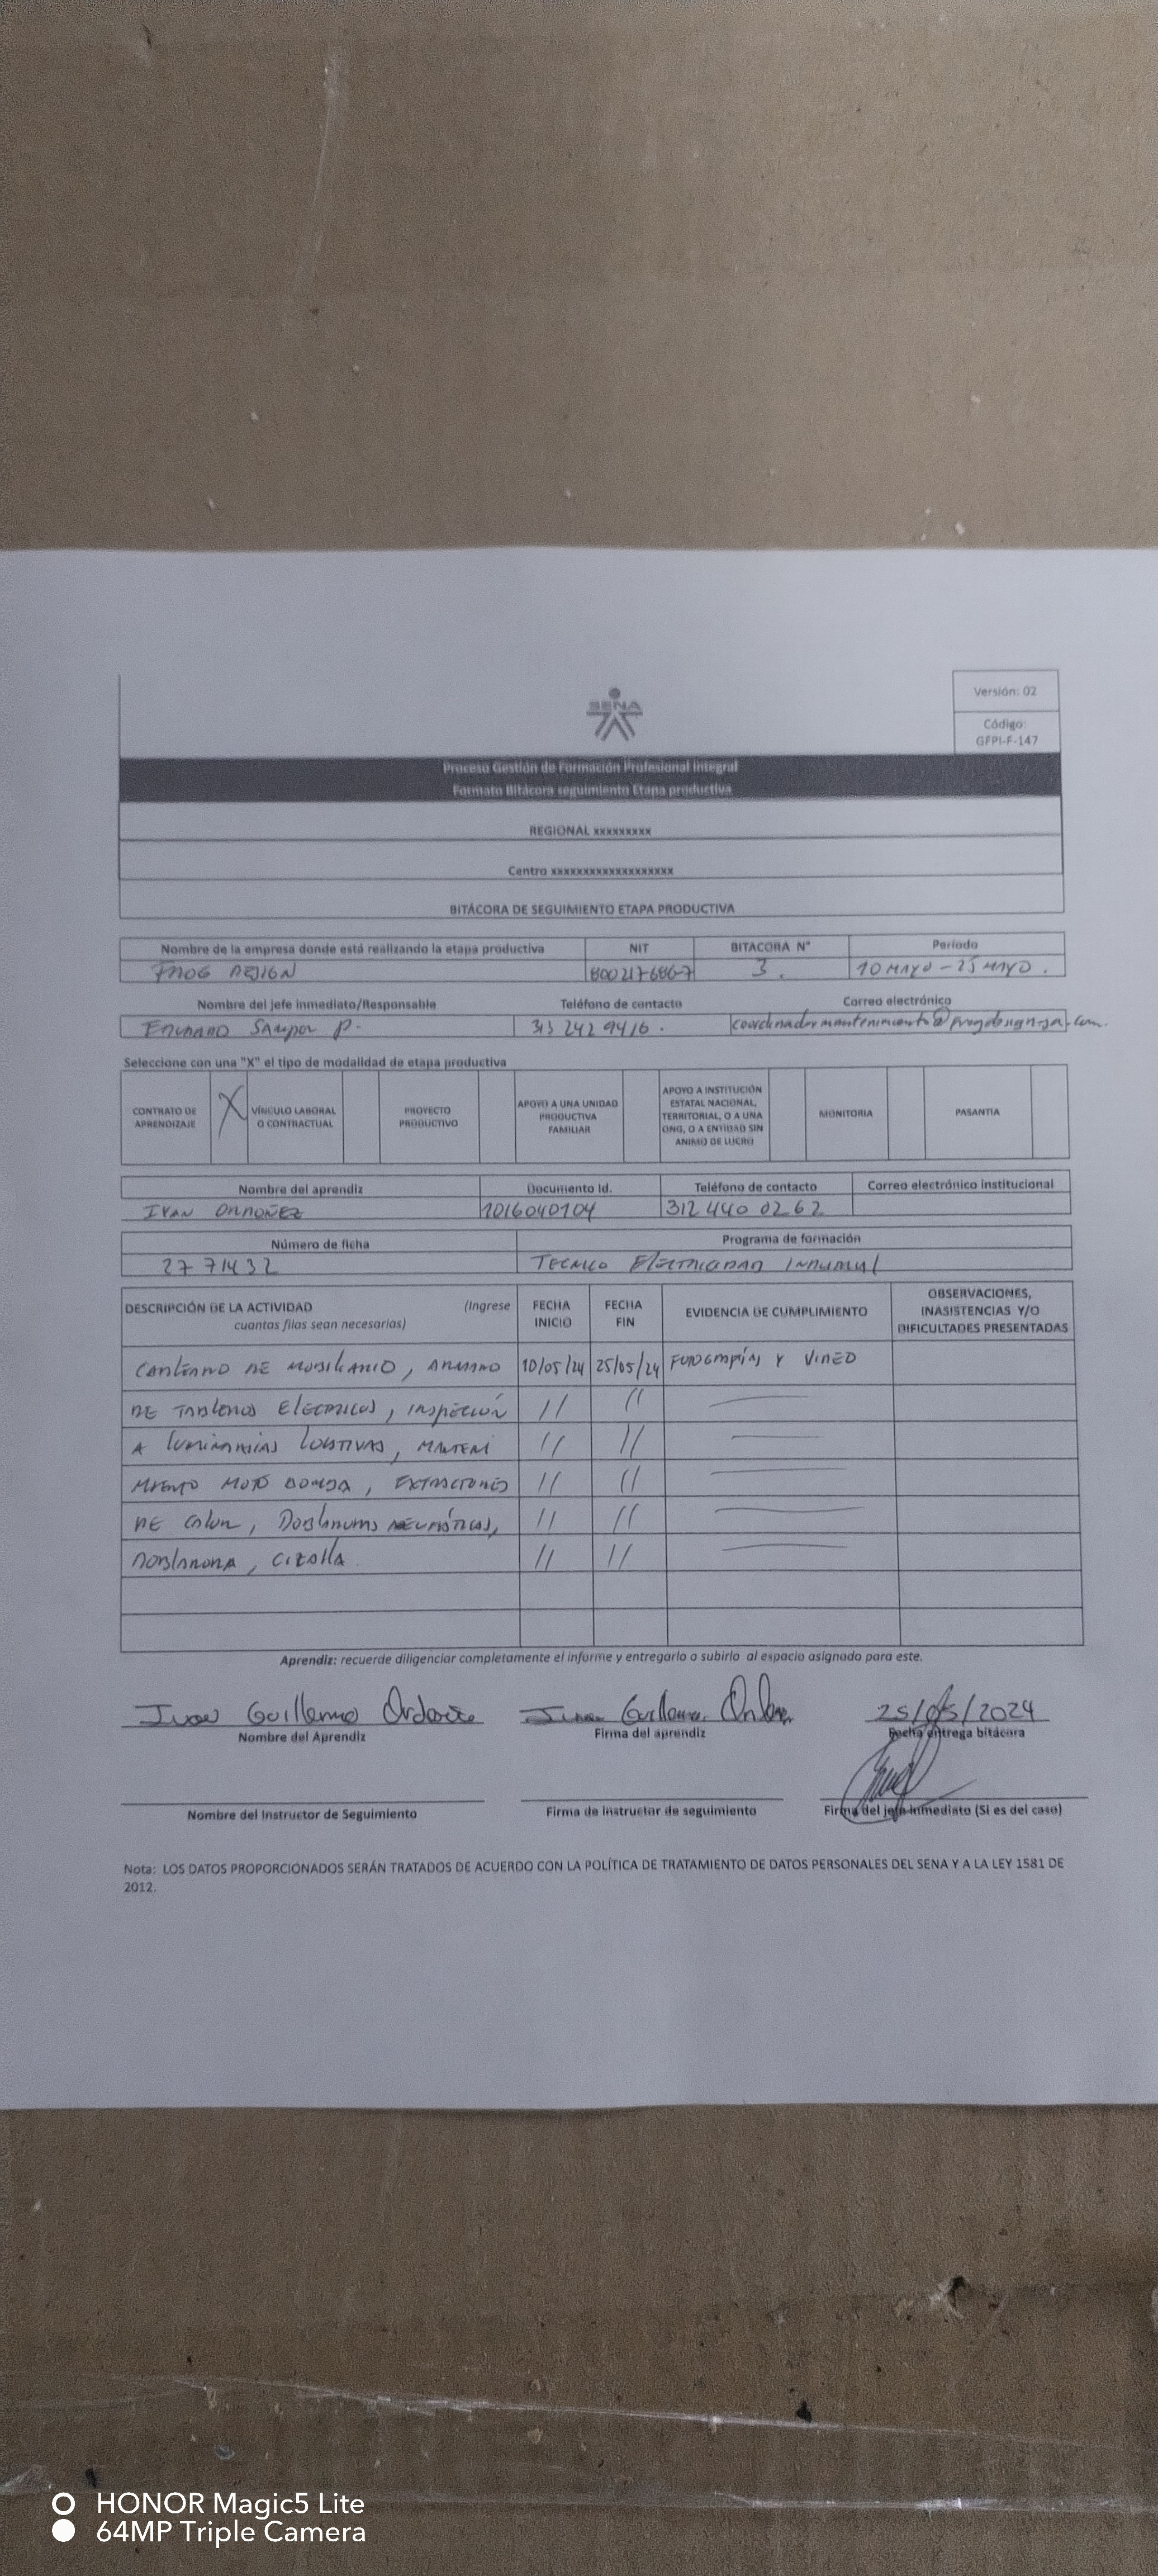 SENA
Versión: 02
Código:
GFPI-F-147
Proceso Gestión de Formación Profesional Integral
Formato Bitácora seguimiento Etapa productiva
REGIONAL xxxxxxxxx
Centro xxxxxxxxxxxxxxxxxxx
BITÁCORA DE SEGUIMIENTO ETAPA PRODUCTIVA
Nombre de la empresa donde está realizando la etapa productiva NIT BITACORA N° Período
FROG DESIGN 800217686-7 3. 10 MAYO - 25 MAYO.
Nombre del jefe inmediato/Responsable Teléfono de contacto Correo electrónico
EDUARDO SAMPER P. 313 242 9416. coordinadormantenimiento@frogdesign-sa.com.
Seleccione con una "X" el tipo de modalidad de etapa productiva
CONTRATO DE APRENDIZAJE X VÍNCULO LABORAL O CONTRACTUAL PROYECTO PRODUCTIVO APOYO A UNA UNIDAD PRODUCTIVA FAMILIAR APOYO A INSTITUCIÓN ESTATAL NACIONAL, TERRITORIAL, O A UNA ONG, O A ENTIDAD SIN ANIMO DE LUCRO MONITORIA PASANTIA
Nombre del aprendiz Documento Id. Teléfono de contacto Correo electrónico institucional
IVAN ORDOÑEZ 1016040104 312 440 0262
Número de ficha Programa de formación
2771432 TECNICO ELECTRICIDAD
DESCRIPCIÓN DE LA ACTIVIDAD (Ingrese cuantas filas sean necesarias) FECHA INICIO FECHA FIN EVIDENCIA DE CUMPLIMIENTO OBSERVACIONES, INASISTENCIAS Y/O DIFICULTADES PRESENTADAS
CABLEADO DE MOBILIARIO, ARMADO 10/05/24 25/05/24 FOTOGRAFÍAS Y VIDEO
DE TABLEROS ELECTRICOS, INSPECCIÓN // //
A LUMINARIAS LOCATIVAS, MANTENI // //
MIENTO MOTO BOMBA, EXTRACTORES // //
DE CALOR, DOBLADORAS NEUMÁTICAS, // //
DOBLADORA, CIZALLA. // //
Aprendiz: recuerde diligenciar completamente el informe y entregarlo o subirlo al espacio asignado para este.
Ivan Guillermo Ordoñez Ivan Guillermo 25/05/2024
Nombre del Aprendiz Firma del aprendiz Fecha entrega bitácora
Nombre del Instructor de Seguimiento Firma de instructor de seguimiento Firma del jefe inmediato (Si es del caso)
Nota: LOS DATOS PROPORCIONADOS SERÁN TRATADOS DE ACUERDO CON LA POLÍTICA DE TRATAMIENTO DE DATOS PERSONALES DEL SENA Y A LA LEY 1581 DE
2012.
HONOR Magic5 Lite
64MP Triple Camera